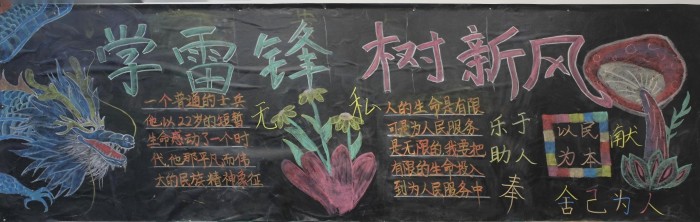 学雷锋 树新风
一个普通的士兵
他以22岁的短暂
生命感动了一个时
代.他那平凡而伟
大的民族精神象征
无私
人的生命是有限
可是为人民服务
是无限的我要把
有限的生命投入
到为人民服务中
乐于
助人
奉献
以民
为本
舍己为人